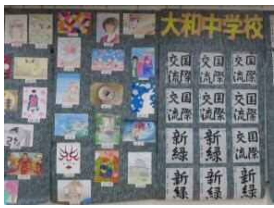 大和中学校
国際交流
国際交流
国際交流
国際交流
国際交流
国際交流
国際交流
新緑
新緑
新緑
新緑
新緑